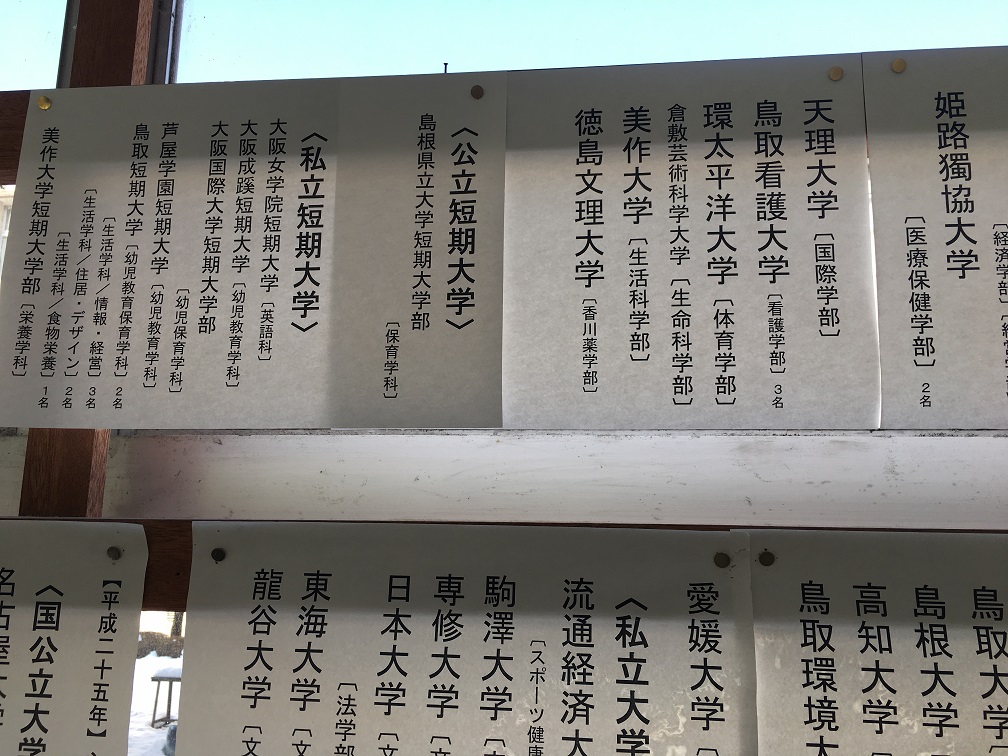 姫路獨協大学
〔医療保健学部〕２名
天理大学〔国際学部〕
鳥取看護大学〔看護学部〕３名
環太平洋大学〔体育学部〕
倉敷芸術科学大学〔生命科学部〕
美作大学〔生活科学部〕
徳島文理大学〔香川薬学部〕
〈公立短期大学〉
島根県立大学短期大学部
〔保育学科〕
〈私立短期大学〉
大阪女学院短期大学〔英語科〕
大阪成蹊短期大学〔幼児教育学科〕
大阪国際大学短期大学部
〔幼児保育学科〕
芦屋学園短期大学〔幼児教育学科〕
鳥取短期大学〔幼児教育保育学科〕２名
〔生活学科／情報・経営〕３名
〔生活学科／住居・デザイン〕２名
〔生活学科／食物栄養〕１名
美作大学短期大学部〔栄養学科〕
鳥取
島根大学
高知大学
鳥取環境
愛媛大学
〈私立大学
流通経済大
〔スポーツ健康
駒澤大学
専修大学
日本大学〔文
〔法学部
東海大学〔文
龍谷大学〔文
【平成二十五年】
〈国公立大学
名古屋